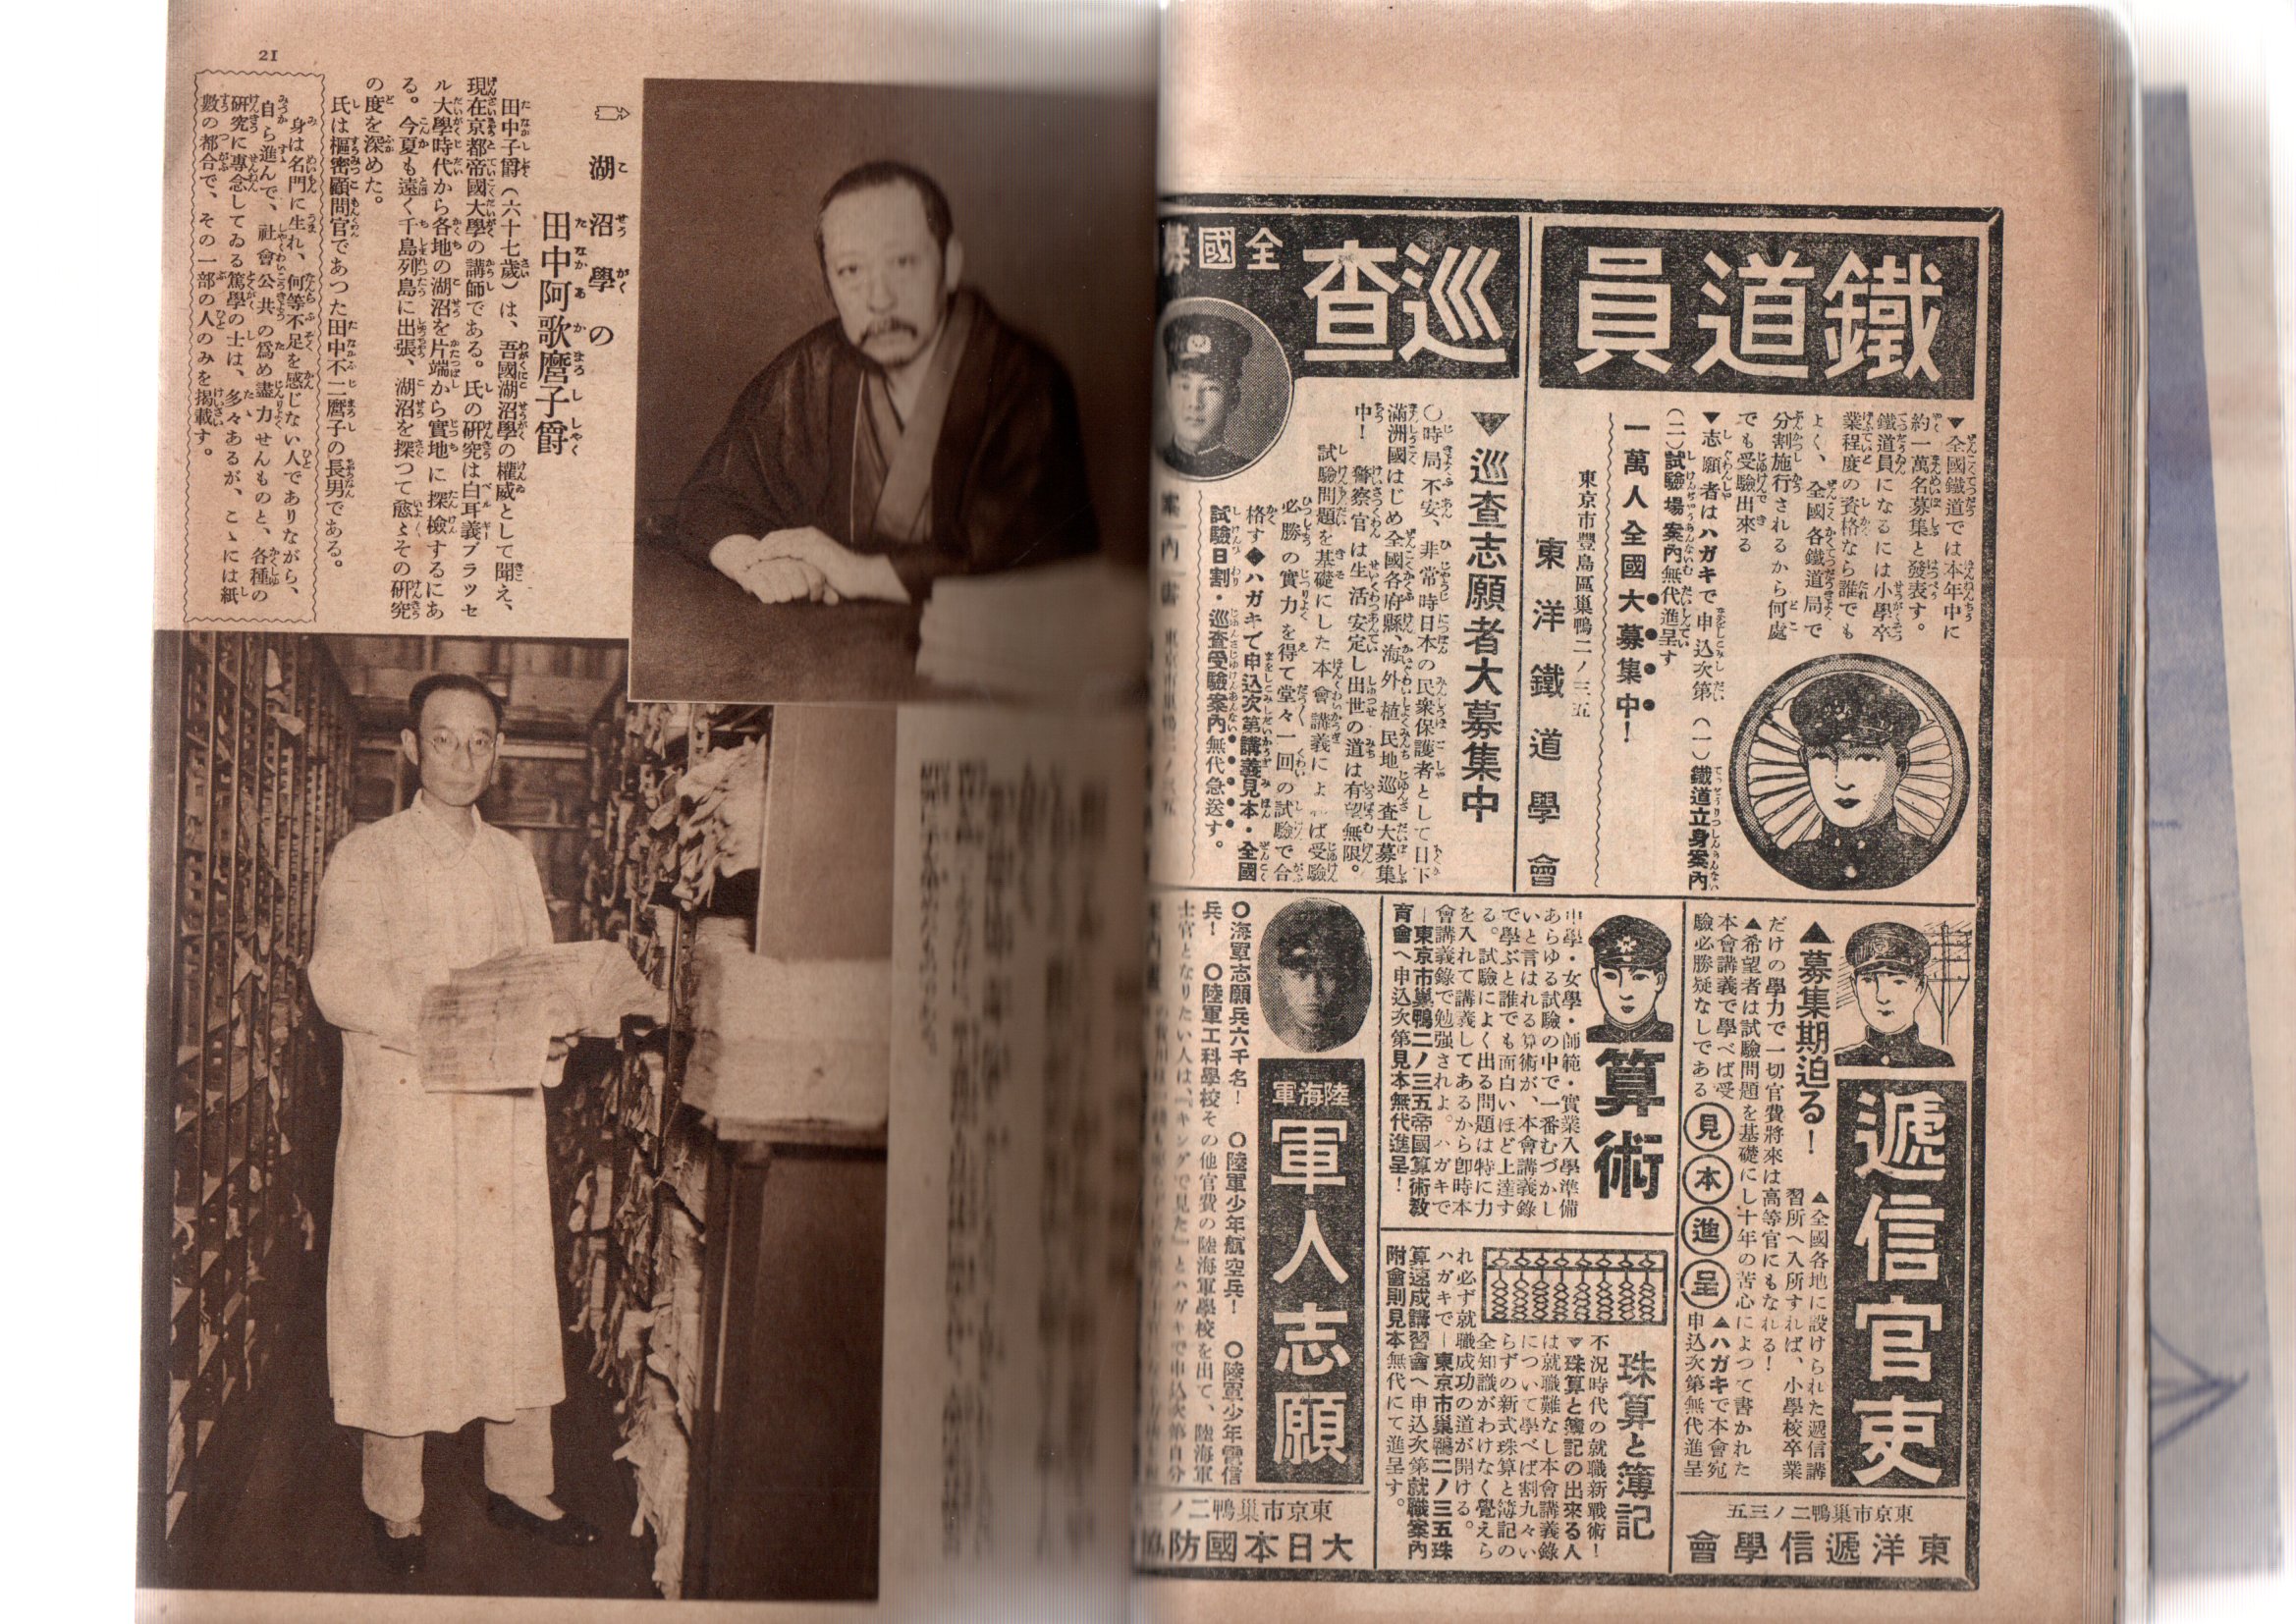 鐵道員
▼全國鐵道では本年中に
約一萬名募集と發表す。
鐵道員になるには小學卒
業程度の資格なら誰でも
よく、全國各鐵道局で
分割施行されるから何處
でも受驗出來る
▼志願者はハガキで申込次第(一)鐵道立身案内
(二)試驗場案内無代進呈す
一萬人全國大募集中!
東京市豐島區巢鴨二ノ三五
東洋鐵道學會
巡査
全國募
▼巡査志願者大募集中
〇時局不安、非常時日本の民衆保護者として目下
滿洲國はじめ全國各府縣、海外植民地巡査大募集
中!警察官は生活安定し出世の道は有望無限。
試驗問題を基礎にした本會講義によ ば受驗
必勝の實力を得て堂々一回の試驗で合
格す◆ハガキで申込次第講義見本・全國
試驗日割・巡査受驗案内無代急送す。
案内書
遞信官吏
▲募集期迫る!
▲全國各地に設けられた遞信講
習所へ入所すれば、小學校卒業
だけの學力で一切官費將來は高等官にもなれる!
▲希望者は試驗問題を基礎にし十年の苦心によつて書かれた
本會講義で學べば受
驗必勝疑なしである
見本進呈
▲ハガキで本會宛
申込次第無代進呈
東京市巢鴨二ノ三五
東洋遞信學會
算術
中學・女學・師範・實業入學準備
あらゆる試驗の中で一番むづかし
いと言はれる算術が、本會講義錄
で學ぶと誰でも面白いほど上達す
る。試驗によく出る問題は特に力
を入れて講義してあるから卽時本
會講義錄で勉强されよ。ハガキで
―東京市巢鴨二ノ三五帝國算術敎
育會へ申込次第見本無代進呈!
珠算と簿記
不況時代の就職新戰術!
▼珠算と簿記の出來る人
は就職難なし本會講義錄
について學べば割九々い
らずの新式珠算と簿記の
全知識がわけなく覺えら
れ必ず就職成功の道が開ける。
ハガキで―東京市巢鴨二ノ三五珠
算速成講習會へ申込次第就職案内
附會則見本無代にて進呈す。
陸海軍
軍人志願
〇海軍志願兵六千名! 〇陸軍少年航空兵! 〇陸軍少年電信
兵! 〇陸軍工科學校その他官費の陸海軍學校を出て、陸海軍
士官となりたい人は、『キングで見た』とハガキで申込次第自分
東京市巢鴨二ノ三
大日本國防
21
湖沼學の
田中阿歌麿子爵
田中子爵(六十七歲)は、吾國湖沼學の權威として聞え、
現在京都帝國大學の講師である。氏の硏究は白耳義ブラッセ
ル大學時代から各地の湖沼を片端から實地に探檢するにあ
る。今夏も遠く千島列島に出張、湖沼を探つて愈々その硏究
の度を深めた。
氏は樞密顧問官であつた田中不二麿子の長男である。
身は名門に生れ、何等不足を感じない人でありながら、
自ら進んで、社會公共の爲め盡力せんものと、各種の
硏究に專念してゐる篤學の士は、多々あるが、こゝには紙
數の都合で、その一部の人のみを揭載す。